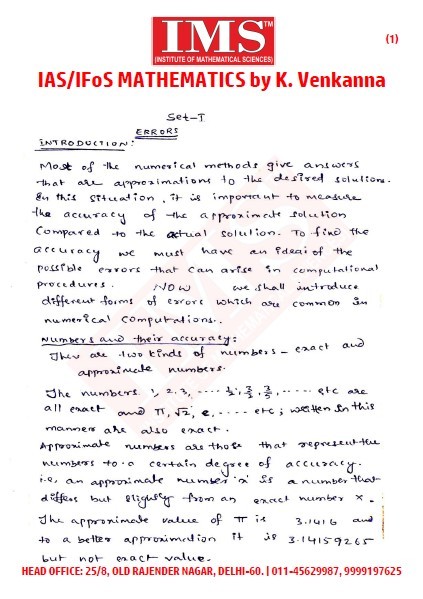 IMS
TM
(INSTITUTE OF MATHEMATICAL SCIENCES)
(1)
IAS/IFoS MATHEMATICS by K. Venkanna
Set-I
ERRORS
INTRODUCTION:
Most of the numerical methods give answers
that are approximations to the desired solutions.
In this situation, it is important to measure
the accuracy of the approximate solution
compared to the actual solution. To find the
accuracy we must have an idea of the
possible errors that can arise in computational
procedures. NOW we shall introduce
different forms of errors which are common in
numerical computations.
Numbers and their accuracy:
There are two kinds of numbers – exact and
approximate numbers.
The numbers 1, 2, 3, ..... 1/2, 3/2, 3/5, ..... etc are
all exact and π, √2, e, ..... etc; written in this
manner are also exact.
Approximate numbers are those that represent the
numbers to a certain degree of accuracy.
i.e, an approximate number 'x' is a number that
differs but slightly from an exact number X.
The approximate value of π is 3.1416 and
to a better approximation it is 3.14159265
but not exact value.
HEAD OFFICE: 25/8, OLD RAJENDER NAGAR, DELHI-60. | 011-45629987, 9999197625